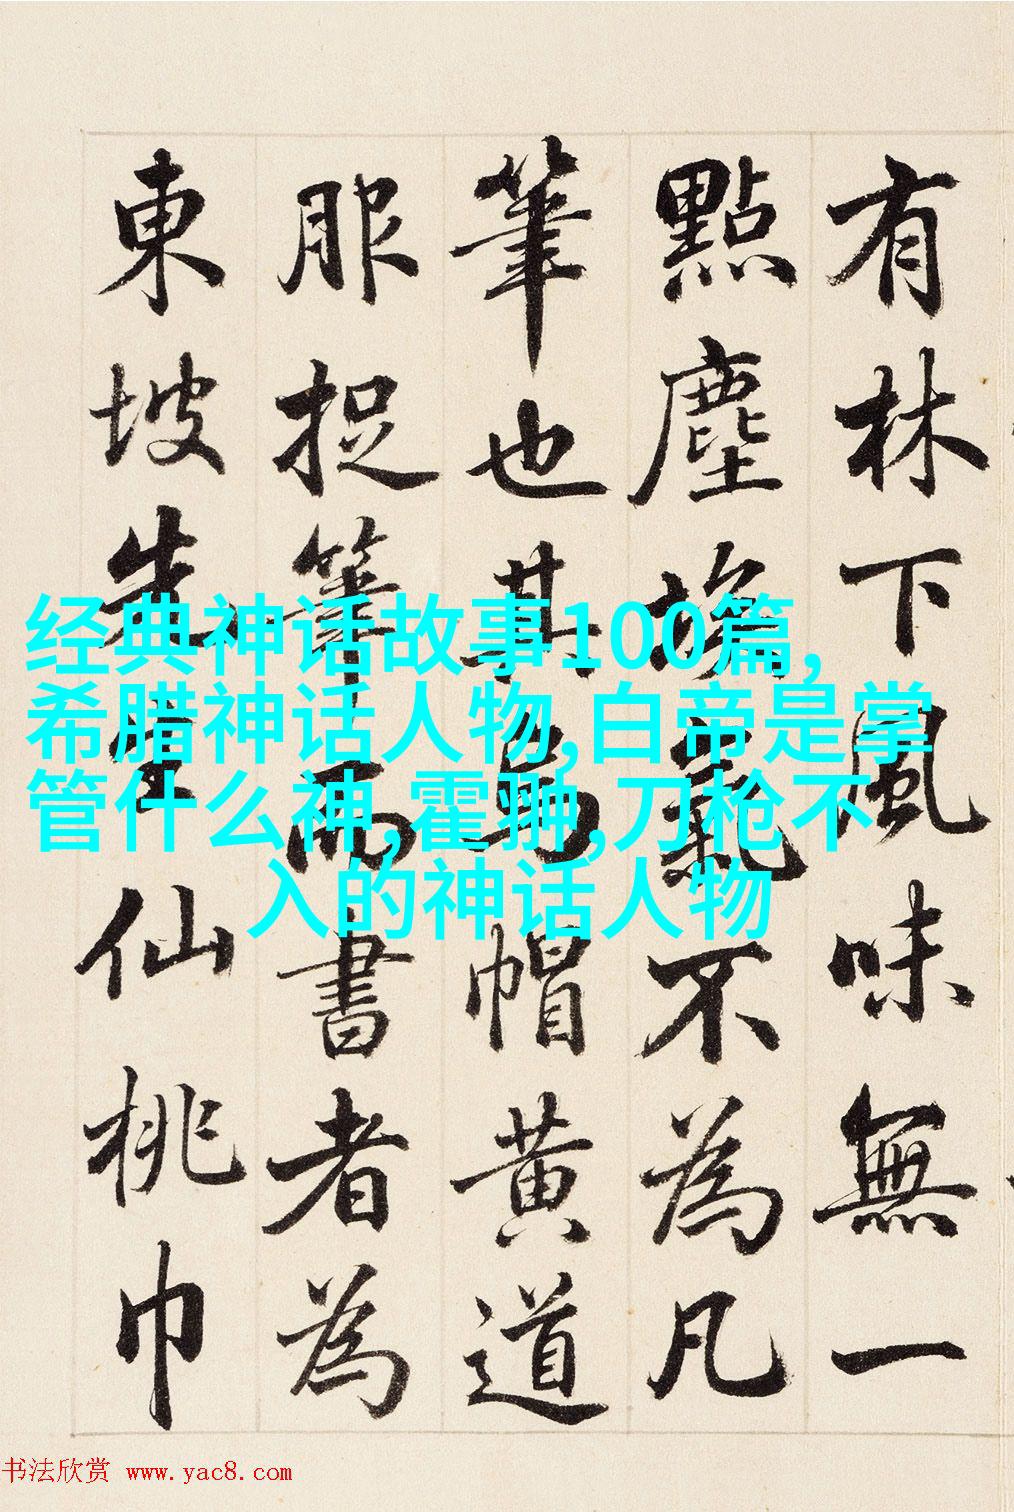 有林下風味無一
點塵埃氣不為凡
筆也其烏帽黃道
服捉筆而書者為
東坡先生仙桃巾
经典神话故事100篇,
希腊神话人物,白帝是掌
管什么神,霍翀,刀枪不
入的神话人物
书法欣赏 www.yac8.com